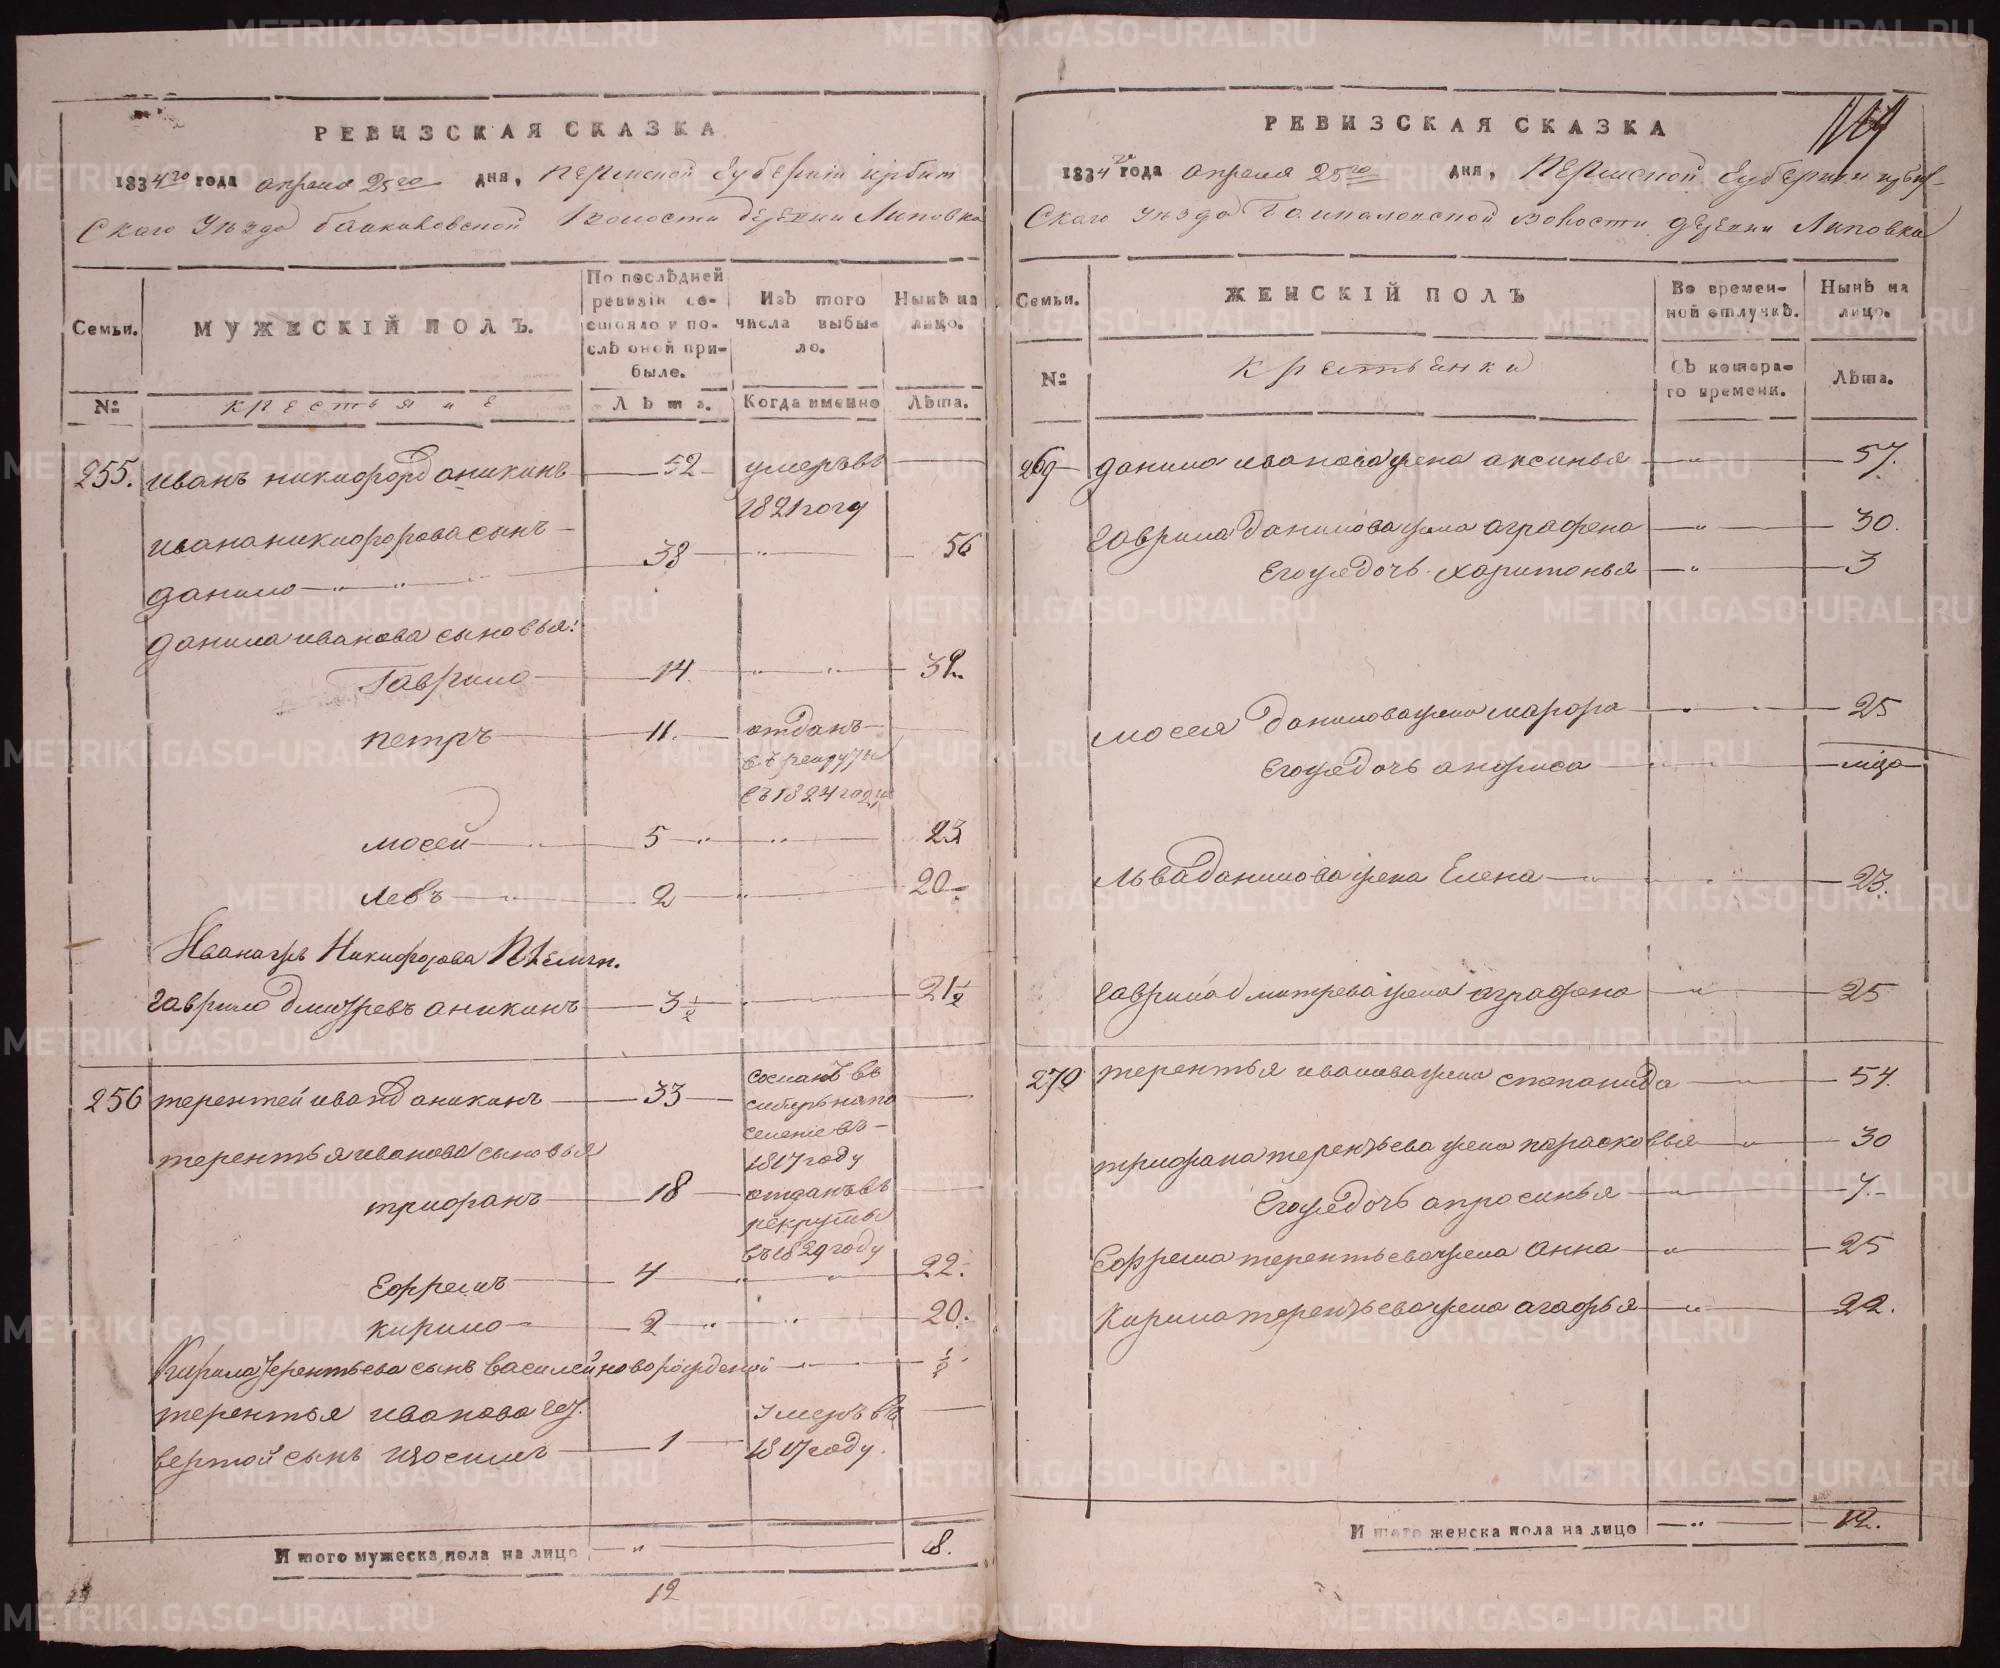 РЕВИЗСКАЯ СКАЗКА
1834го года апреля 25го дня, Пермской Губернiи ирбит
Скаго Уѣзда Волости деревни Липовки
Семьи.
МУЖЕСКІЙ ПОЛЪ.
По послѣдней ревизіи состояло и послѣ оной прибыле.
Изъ того числа выбыло.
Нынѣ на лицо.
№
крестьяне
Лѣта.
Когда именно
Лѣта.
255. иванъ никифоровъ аникинъ 52 умеръ въ 1821 году
ивана никифорова сынъ
данило 38 " 56
данила иванова сыновья:
Гаврило 14 " " 32
петръ 11. отданъ въ рекруты въ 1824 году
мосей 5 " " 23
левъ 2 " 20
Ивана Никифорова племян.
гаврило дмитревъ аникинъ 3 1/2 21 1/2
256 терентей ивановъ аникинъ 33 сосланъ въ сибирь на поселеніе въ 1817 году
терентья иванова сыновья
трифанъ 18 отданъ въ рекруты въ 1829 году
Ефремъ 4 " " 22.
кирило 2 " " 20.
Кирила терентьева сынъ василей новорожденой 1/2
терентья иванова чет
вертой сынъ изосимъ 1 умеръ въ 1817 году.
Итого мужеска пола на лицо " 8.
12
РЕВИЗСКАЯ СКАЗКА
1834го года апреля 25го дня, Пермской Губернии ирбит
Скаго уѣзда волости деревни Липовки
Семьи.
ЖЕНСКІЙ ПОЛЪ
Во временной отлучкѣ.
Нынѣ на лицо.
№
крестьянки
Съ котораго времени.
Лѣта.
269 данила иванова жена аксинья " 57.
гаврила данилова жена аграфена " 30.
Его же дочь харитонья " 3
мосея данилова жена марфа " 25
Его же дочь анфиса
льва данилова жена Елена " 23.
гаврила дмитрева жена аграфена " 25
270 терентья иванова жена степанида " 54.
трифана терентьева жена парасковья " 30
Его же дочь апросинья " 7.
Ефрема терентьева жена анна " 25
Кирила терентьева жена агафья " 22.
Итого женска пола на лицо " 12.
METRIKI.GASO-URAL.RU